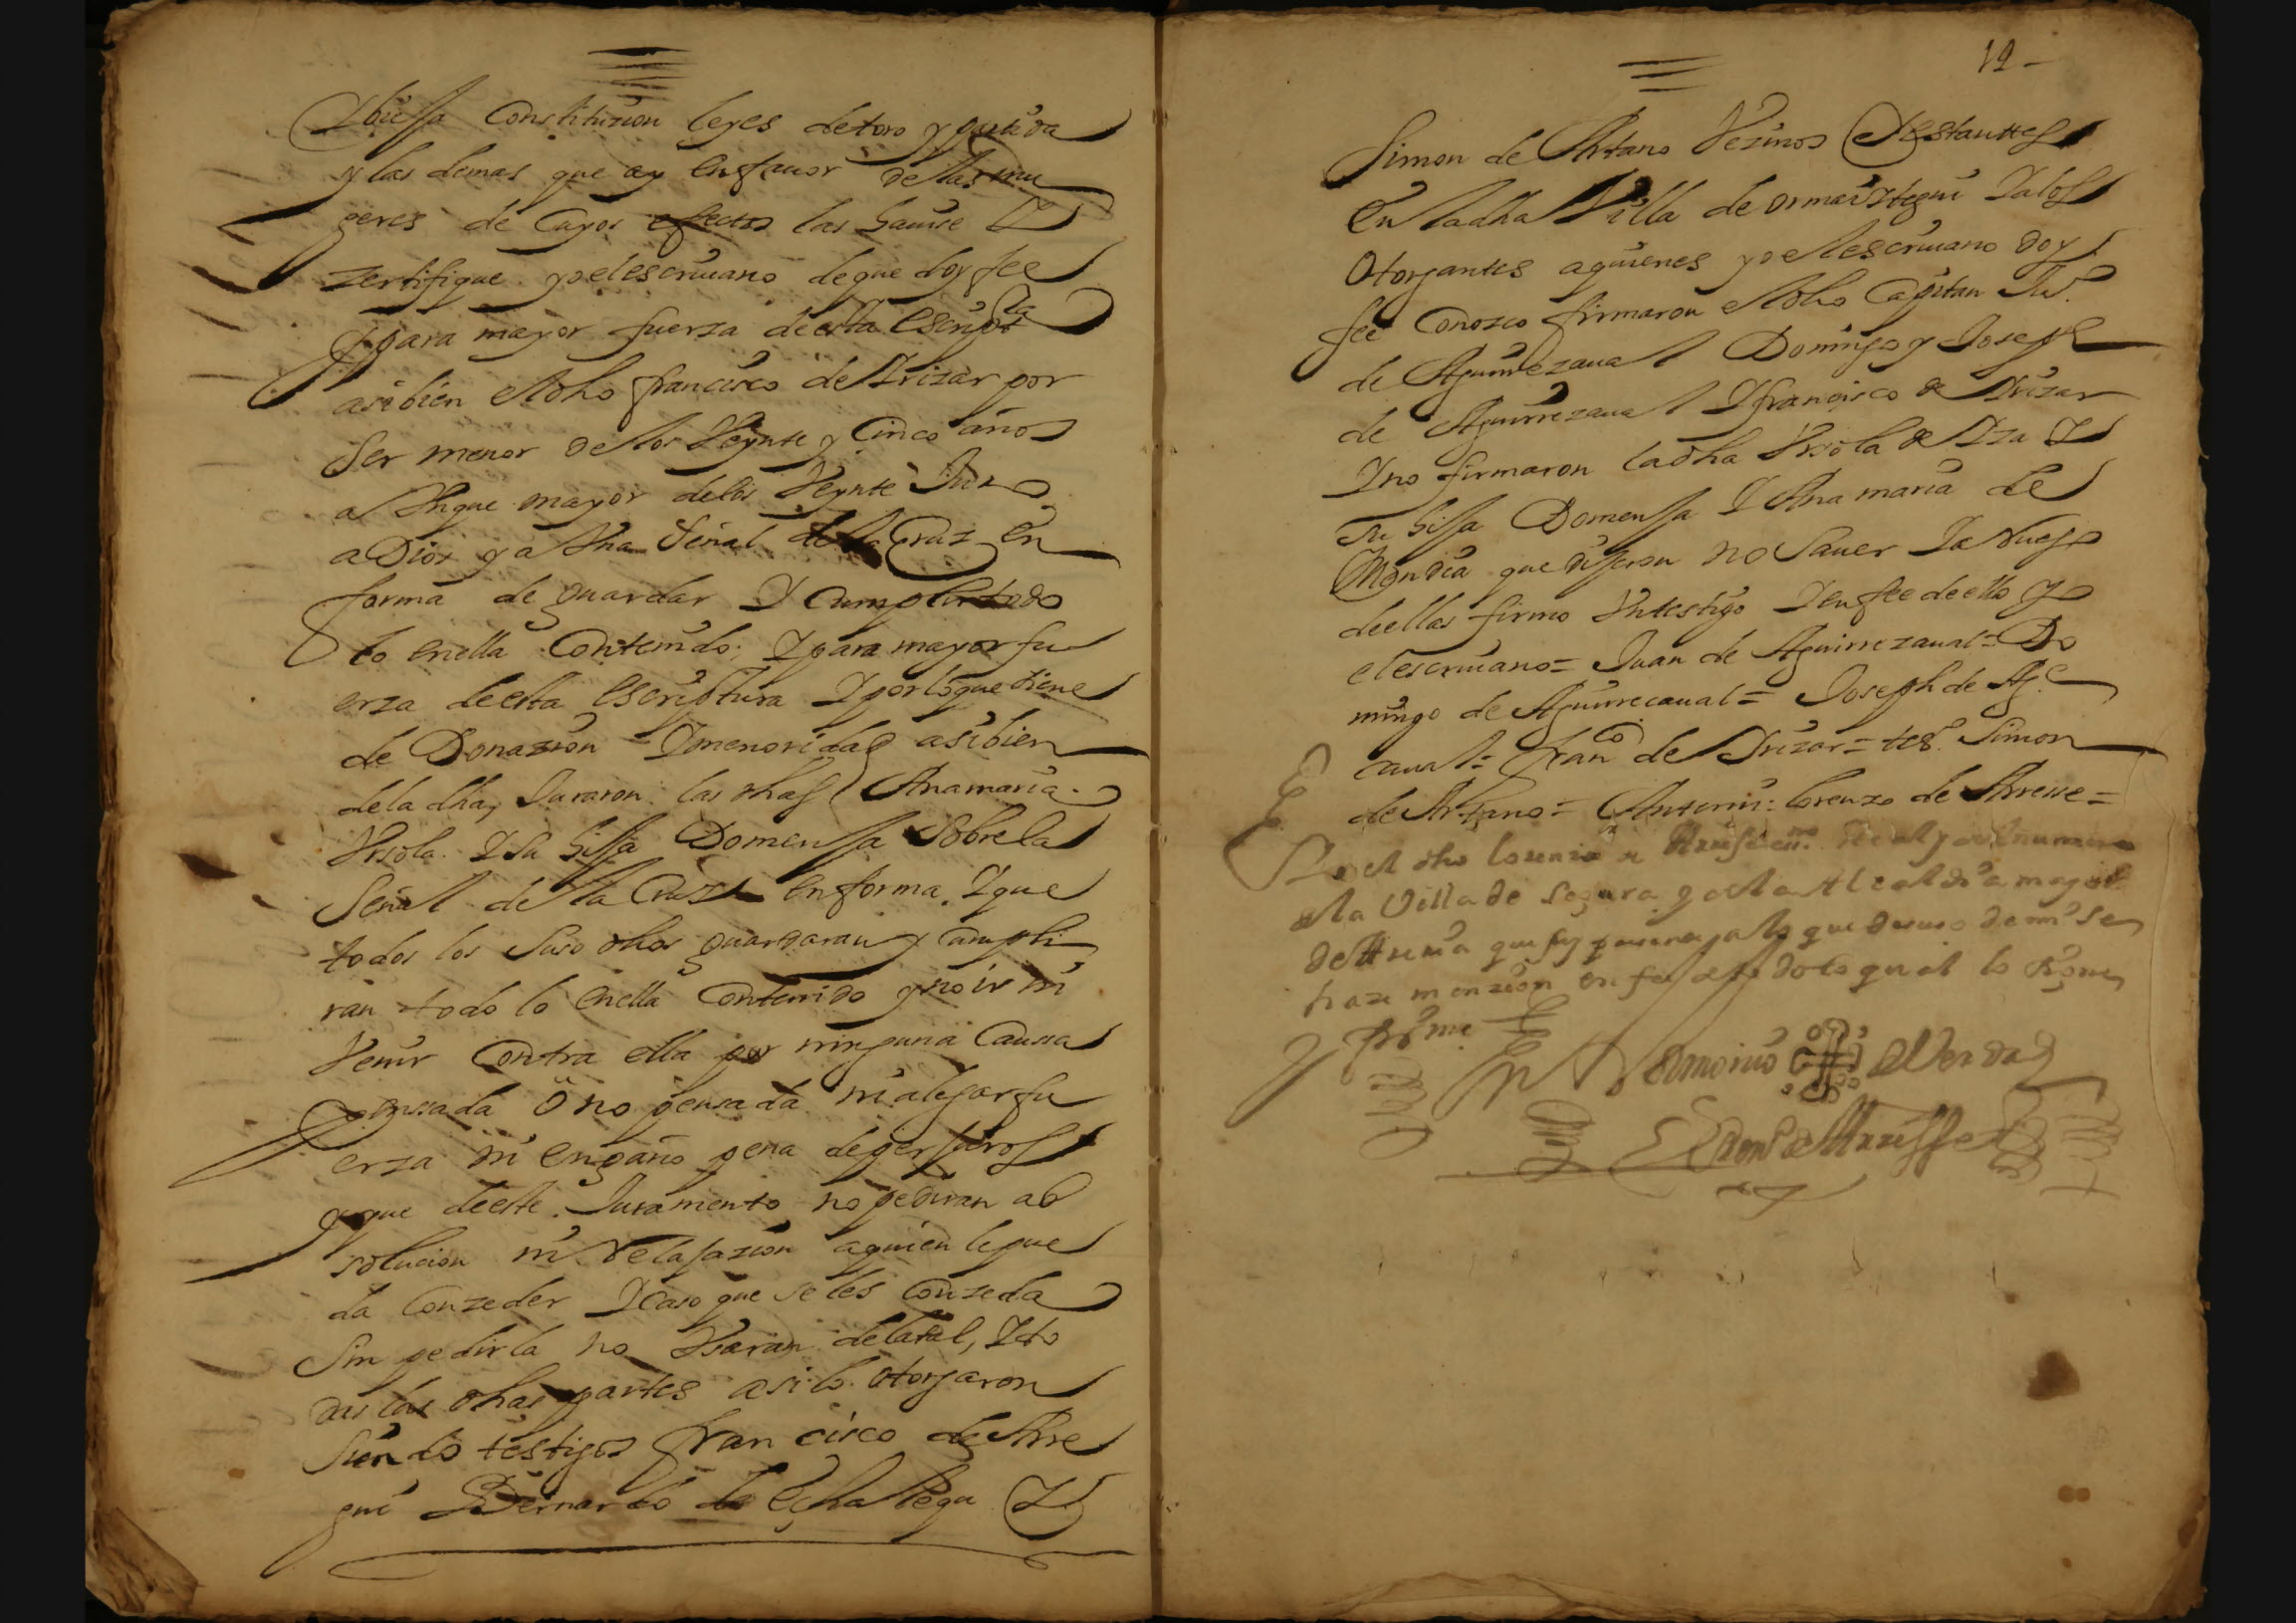 Y buessa Constituzion leyes de toro y partida
y las demas que ay en fauor de las mu
geres de Cayos efectos las hauise Y
zertifique yo el escriuano de que doy fee
Y para mayor fuerza de esta escriptª
asi bien el dho francisco de Yrizar por
Ser menor de los Veynte y Cinco años
a Vnque mayor de los Veynte Juro
a Dios y a Vna Señal de la Cruz en
forma de guardar Y Cumplir todo
lo en ella Contenido; Y para mayor fu
erza de esta escriptura Y por lo que tiene
de Donazion Y menoridad asi bien
de la dha, Juraron las dhas Ana maria
Vrsola Y su hissa Domenssa Sobre la
Señal de la Cruz en forma, Y que
todos los Suso dhos guardaran y Cumpli
ran todo lo en ella Contenido y no ir ni
Venir Contra ella por ninguna Caussa
pensada o no pensada ni alegar fu
erza ni engaño pena de perjuros
y que de este Juramento no pediran ab
solucion ni Relajazion a quien le pue
da Conzeder Y Caso que se les Conzeda
Sin pedirla no Vsaran de la tal, Y to
das las dhas partes asi lo otorgaron
Siendo testigos francisco de Arre
gui Bernardo de Echallegu Y
12 -
Simon de Artano Vezinos Y estanttes
En la dha Villa de ormaiztegui Y a los
Otorgantes a quienes yo el escriuano doy
fee Conozco firmaron el dho Capitan Juº
de Aguirrezaual Domingo y Joseph
de Aguirrezaual Y francisco de Yrizar
Y no firmaron la dha Vrsola de Yza Y
su hissa Domenssa Y Ana maria de
Mendia que dijeron no Sauer Y a Ruego
de ellas firmo Vn testigo Y en fee de ello yo
el escriuano = Juan de Aguirrezaual = Do
mingo de Aguirrecaual = Joseph de Agᵉ
caual = franᶜᵒ de Yrizar = tesº Simon
de Artano = Antemi: lorenzo de Arrese =
E Yo el dho lorenzo de Arrese ssno. Real y del numero
de la Villa de Segura y de la Alcaldia mayor
de Areria que fuy presente a lo que de suso de mi se
haze menzion en fee de todo lo qual lo signe
y firme
En testimonio de Verdad
Lorenzo de Arrese